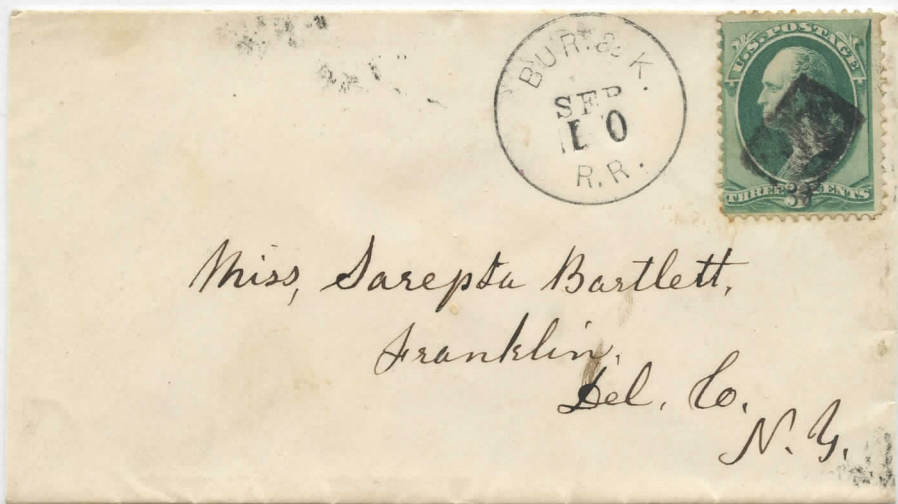 BUR. & K.
SEP
10
R.R.
U.S. POSTAGE
THREE 3 CENTS
Miss, Sarepta Bartlett,
Franklin,
Del. Co.
N. Y.